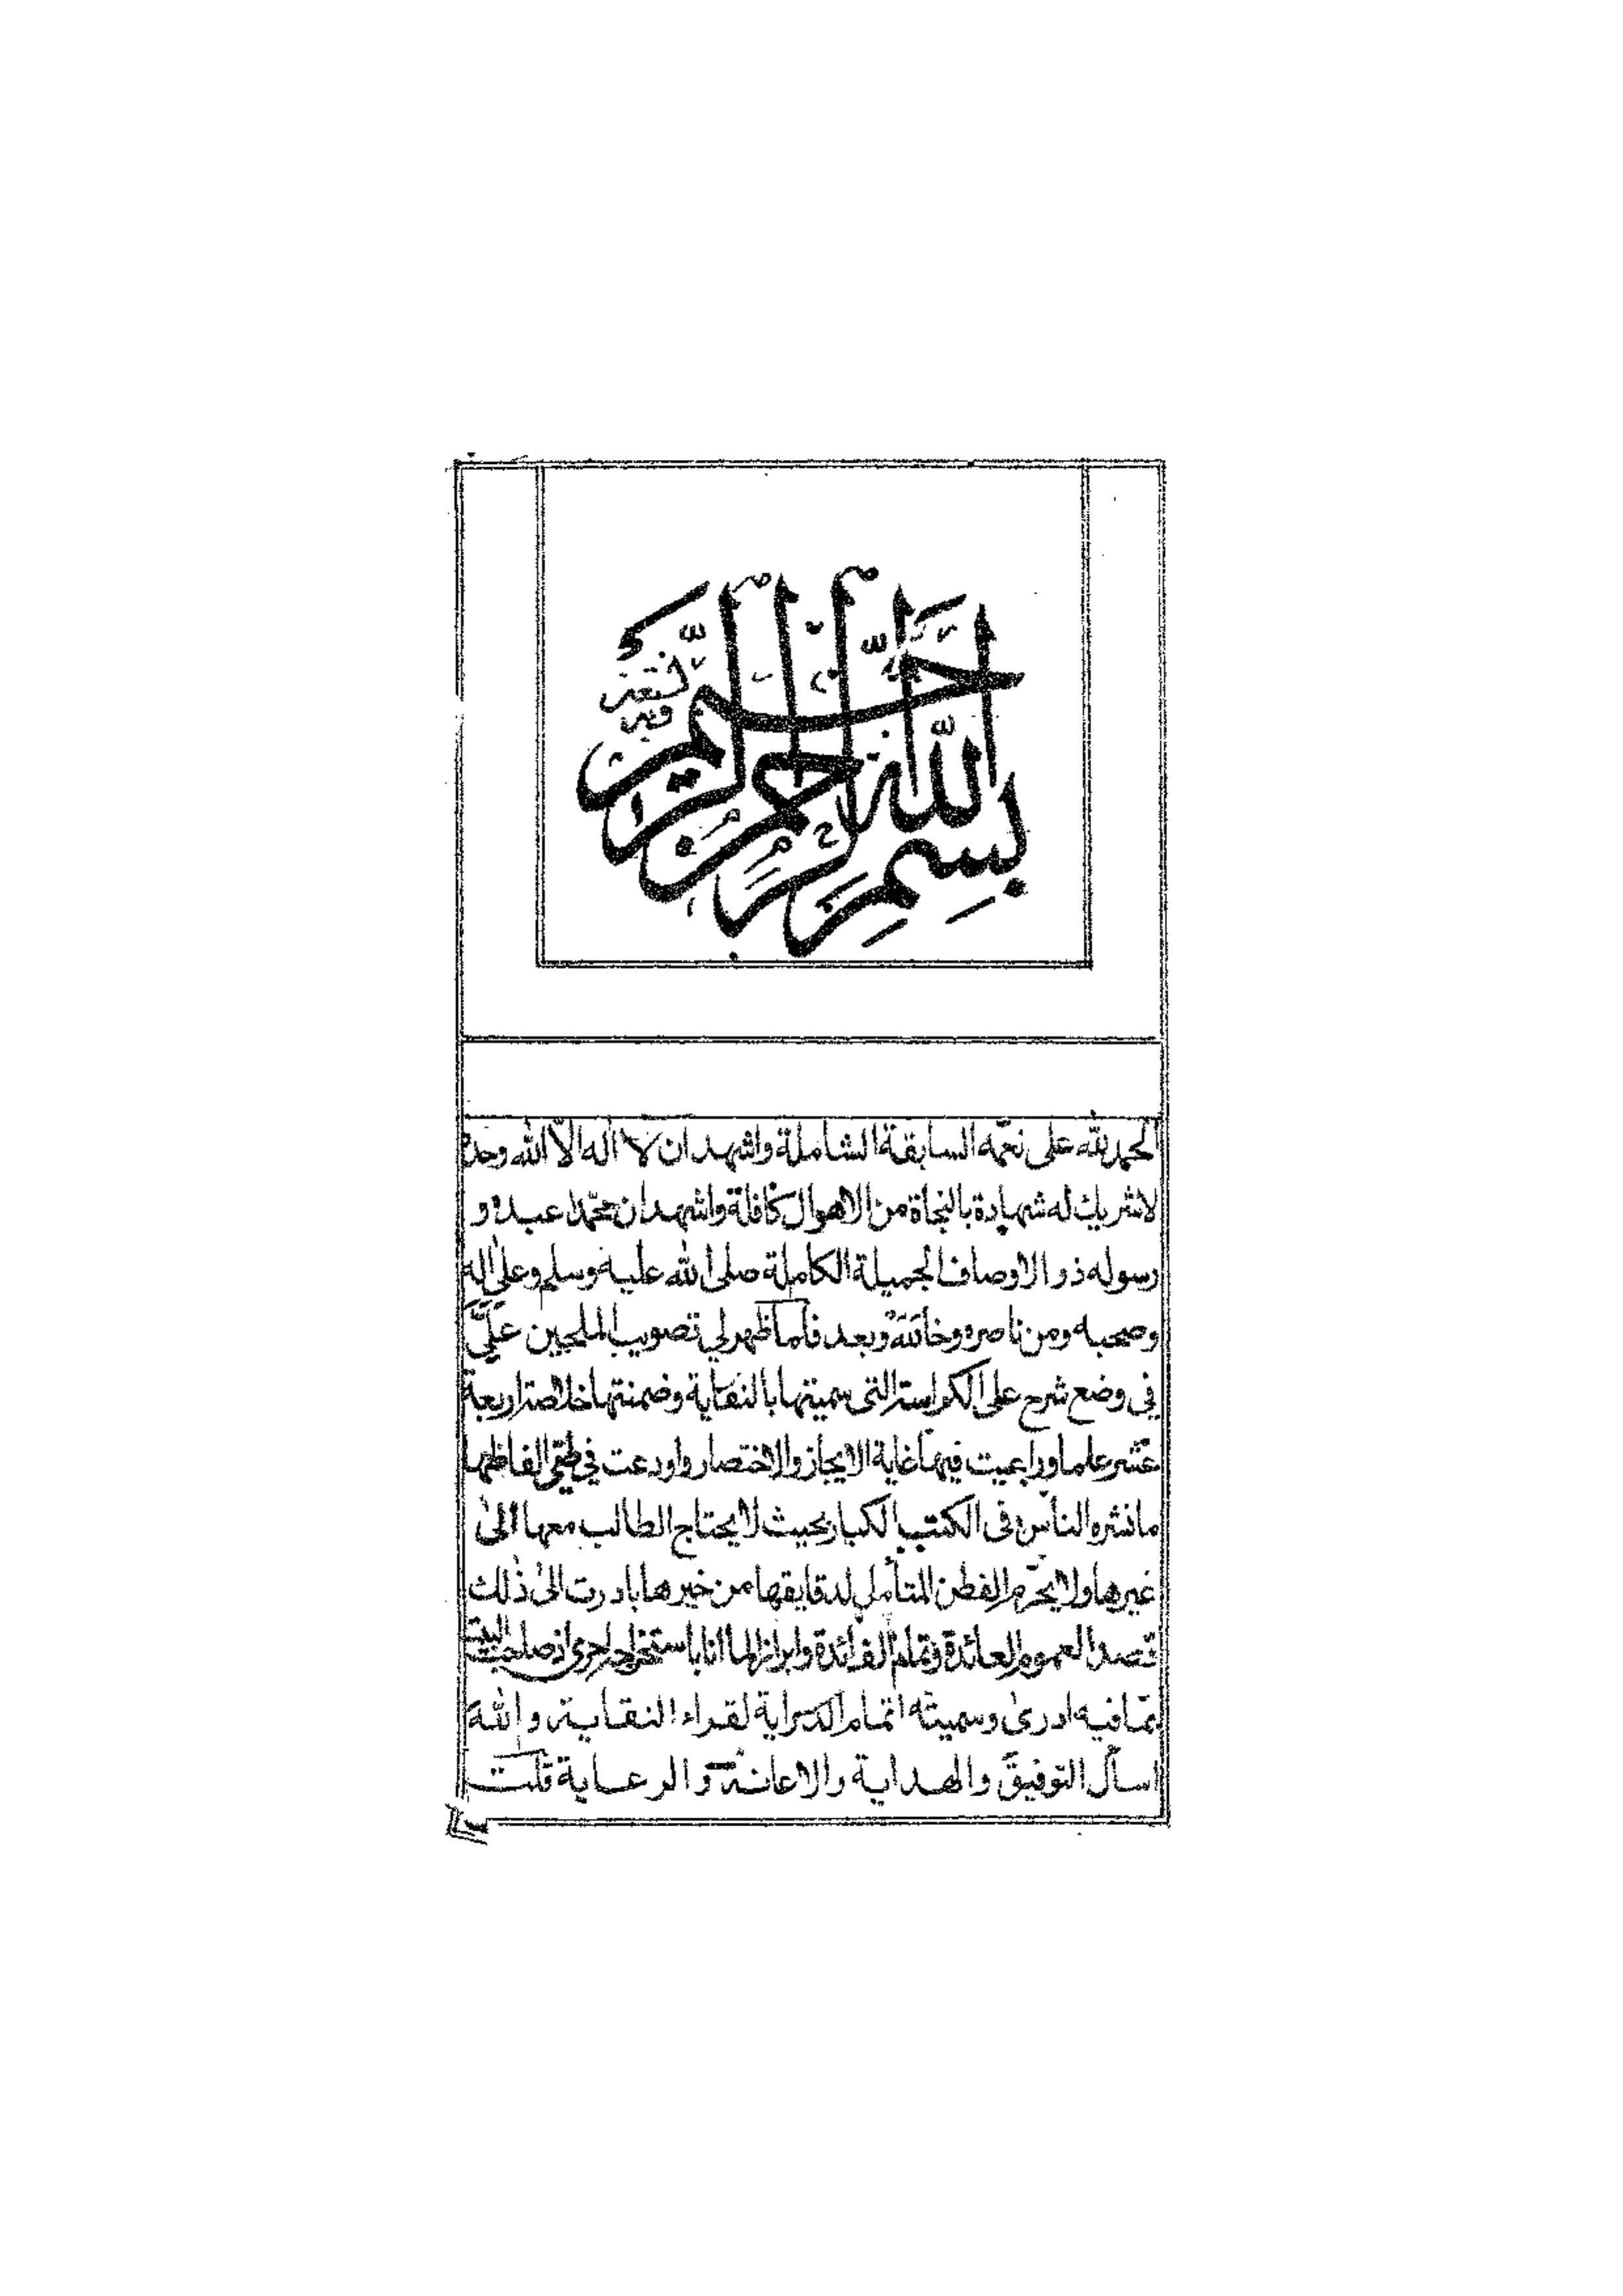 بسم الله الرحمن الرحيم
وبه نستعين
الحمد لله على نعمه السابقة الشاملة واشهد ان لا اله الا الله وحده
لا شريك له شهادة بالنجاة من الاهوال كافلة واشهد ان محمدا عبده و
رسوله ذو الاوصاف الجميلة الكاملة صلى الله عليه وسلم وعلى اله
وصحبه ومن ناصره وخاتنه وبعد فلما ظهر لي تصويب الملحين عليّ
في وضع شرح على الكراسة التى سميتها بالنقاية وضمنتها خلاصة اربعة
عشر علما وراعيت فيها غاية الايجاز والاختصار واودعت في طى الفاظها
ما نثره الناس فى الكتب الكبار بحيث لا يحتاج الطالب معها الى
غيرها ولا يحرم الفطن المتأمل لدقايقها من خيرها بادرت الى ذلك
قصدا لعموم العائدة وتمام الفائدة وابراز لما انا باستخراجه احرى اذ صاحب البيت
بما فيه ادرى وسميته اتمام الدراية لقراء النقاية والله
اسأل التوفيق والهداية والاعانة والرعاية قلت